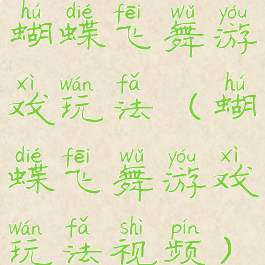 hú dié fēi wǔ yóu
蝴蝶飞舞游
xì wán fǎ hú
戏玩法(蝴
dié fēi wǔ yóu xì
蝶飞舞游戏
wán fǎ shì pín
玩法视频)